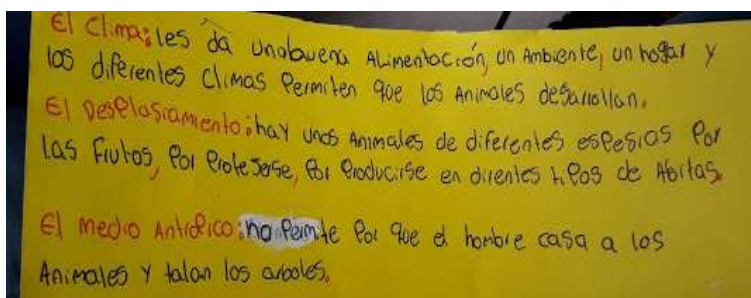 El Clima: les da una buena Alimentación, un Ambiente, un hogar y
los diferentes climas Permiten que los Animales desarrollan.
El Desplasiamiento: hay unos Animales de diferentes espesios Por
las Frutos, Por Protejerse, Por Producirse en direntes tipos de Abitas.
El medio Antropico: no Permite Por que el hombre casa a los
Animales y talan los arboles.